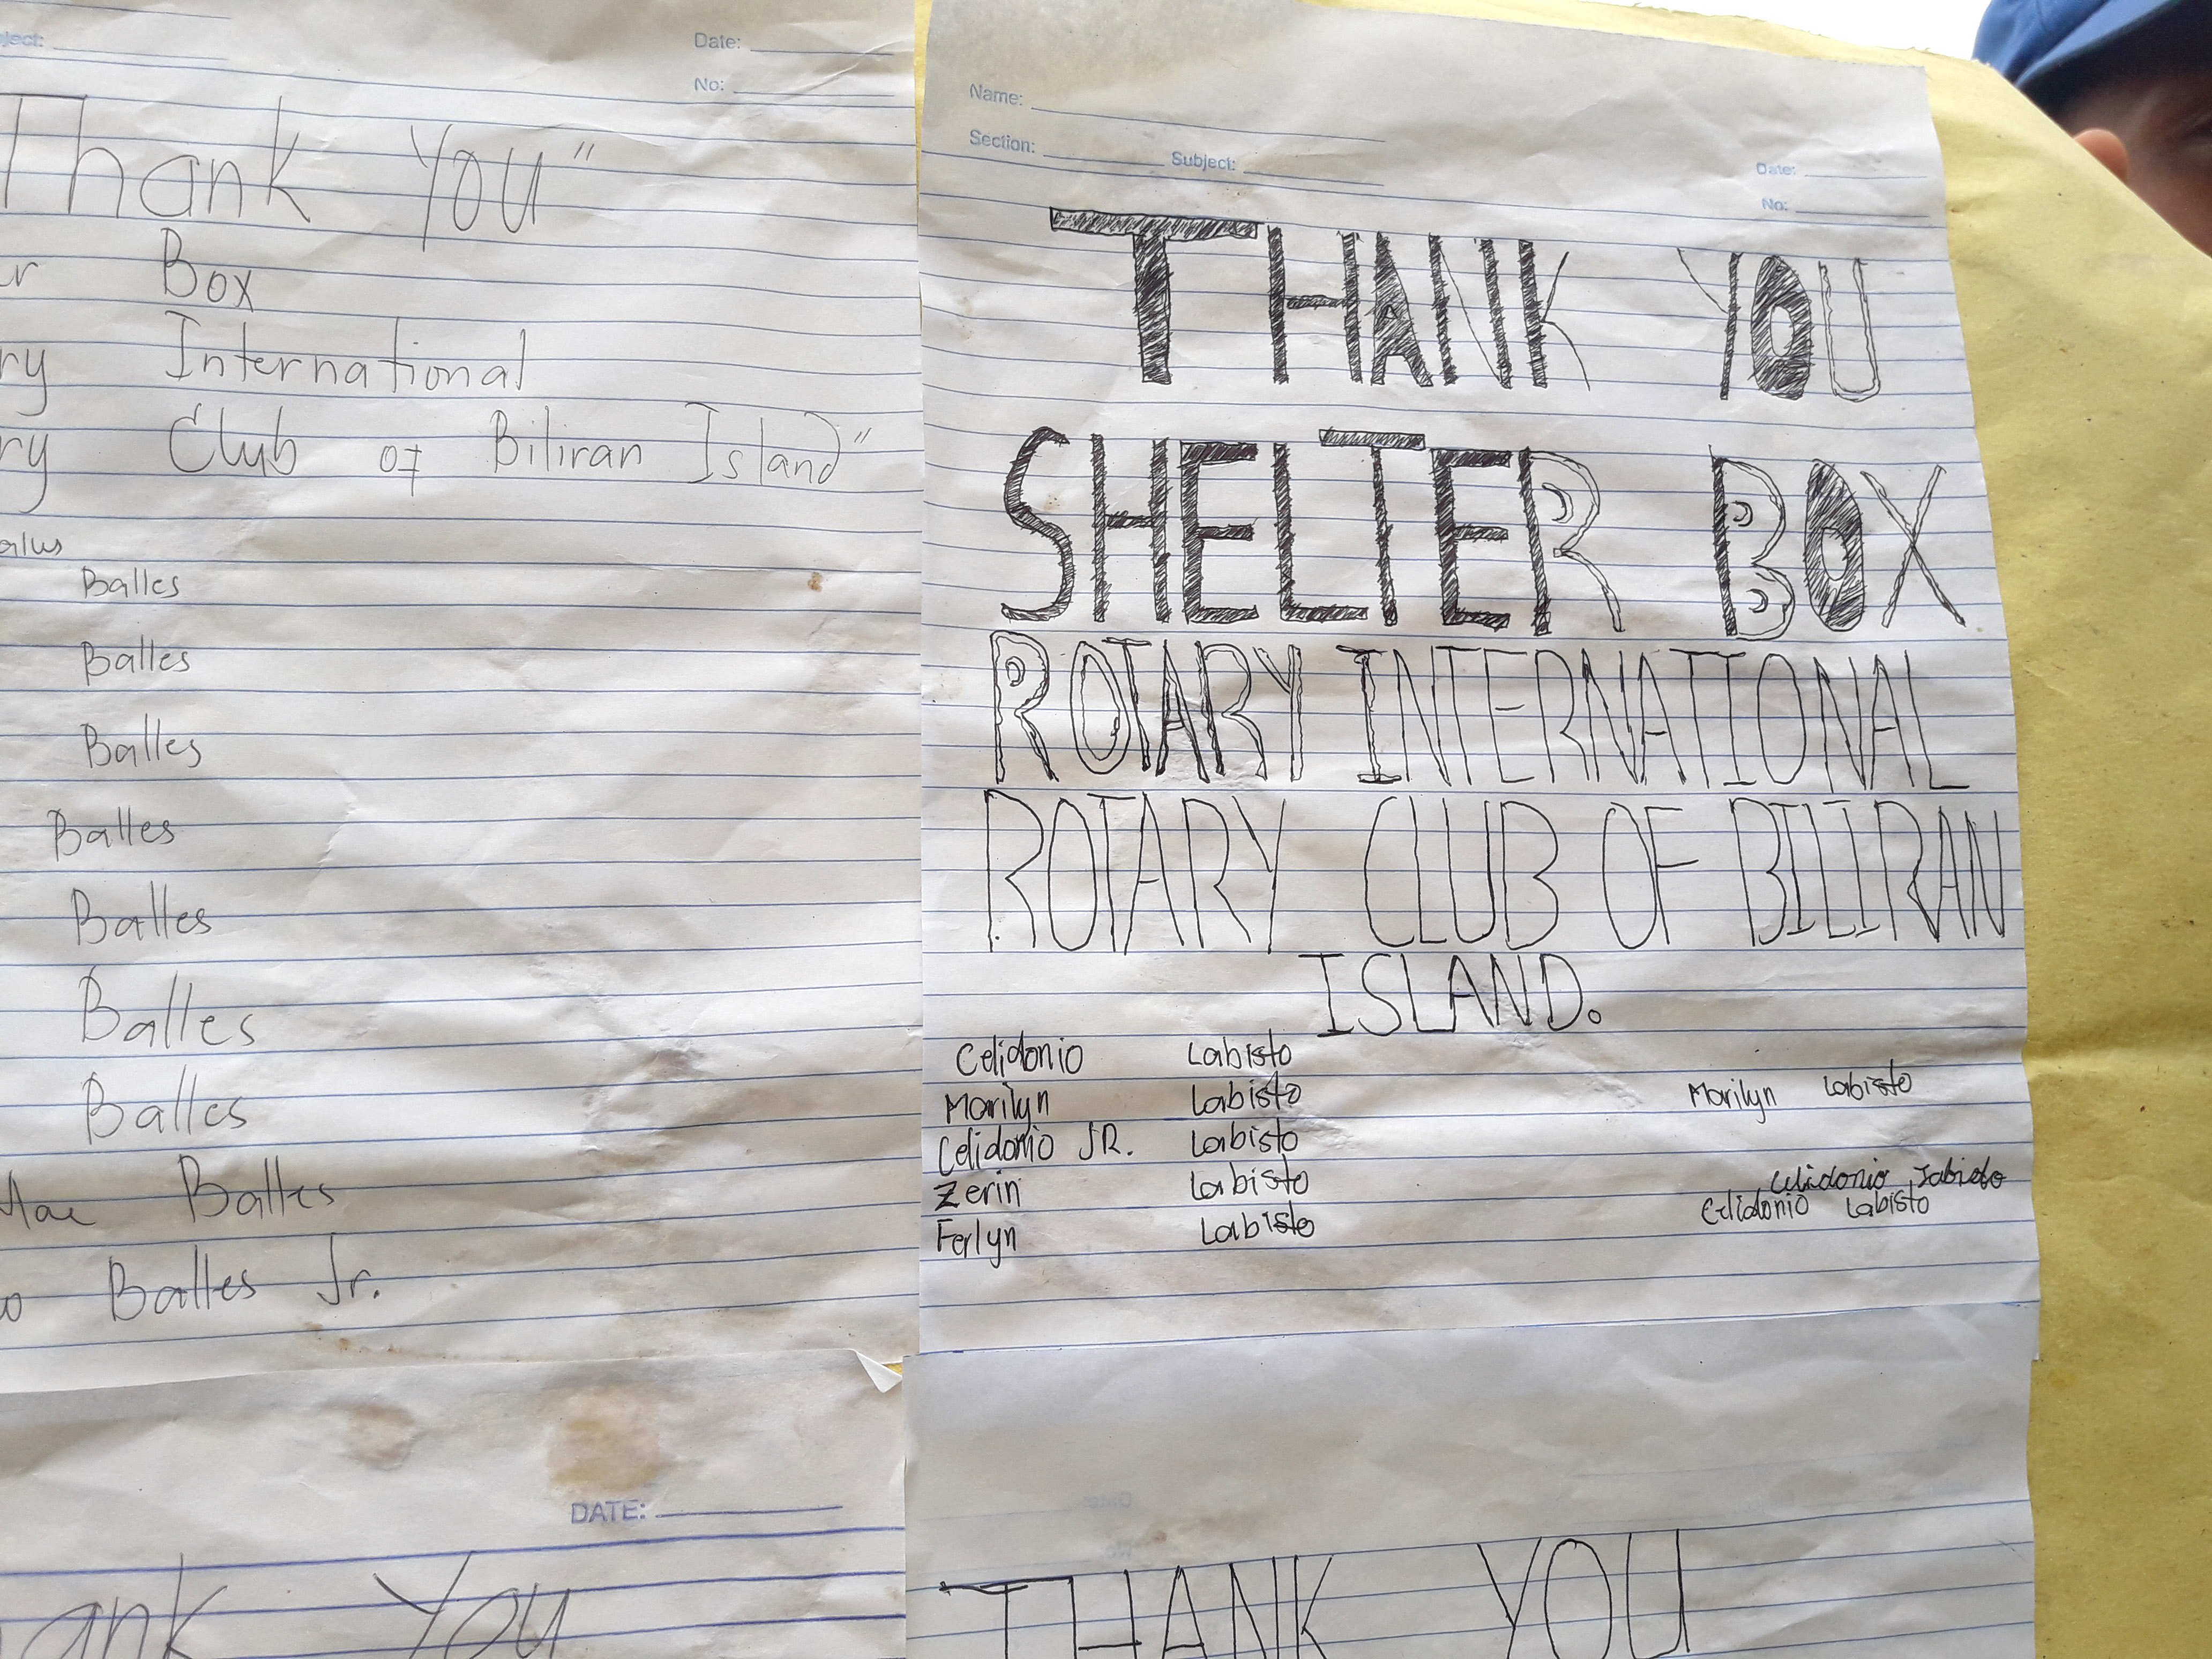 Date:
No:
Thank You"
Box
International
Club of Biliran Island"
Balles
Balles
Balles
Balles
Balles
Balles
Balles
Mae Balles
Balles Jr.
DATE:
You
Name:
Section: Subject: Date:
No:
THANK YOU
SHELTER BOX
ROTARY INTERNATIONAL
ROTARY CLUB OF BILIRAN
ISLAND.
Celidonio Labisto
Marilyn Labisto
Celidonio JR. Labisto
Zerin Labisto
Ferlyn Labisto
Marilyn Labisto
Celidonio Labisto
Celidonio Labisto
THANK YOU